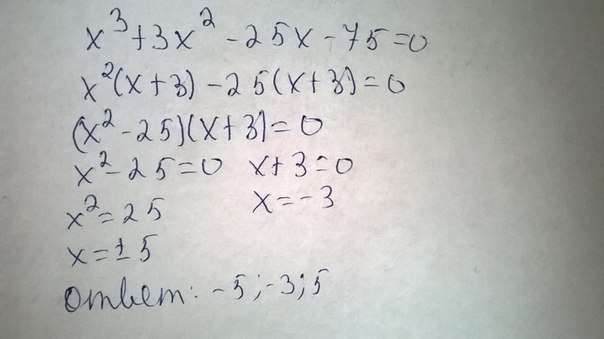 x³+3x²-25x-75=0
x²(x+3)-25(x+3)=0
(x²-25)(x+3)=0
x²-25=0 x+3=0
x²=25 x=-3
x=±5
Ответ: -5;-3;5